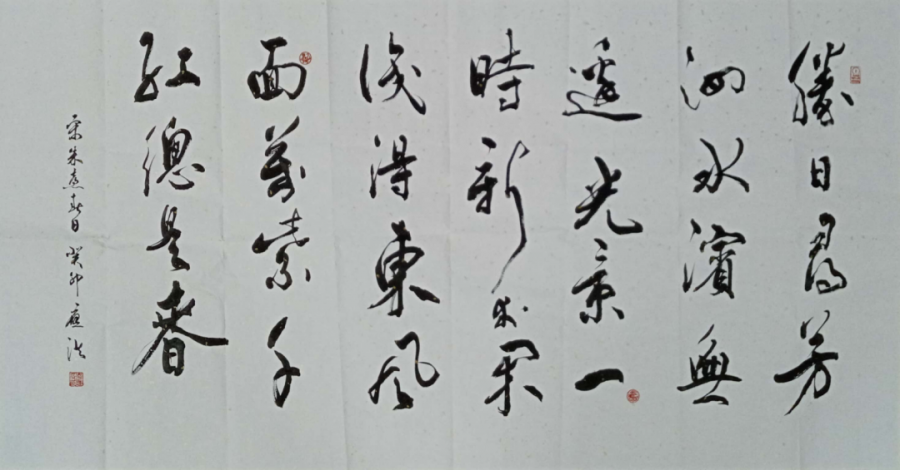 勝日尋芳
泗水濱無
邊光景一
時新等閑
識得東風
面萬紫千
紅總是春
宋朱熹春日 癸卯